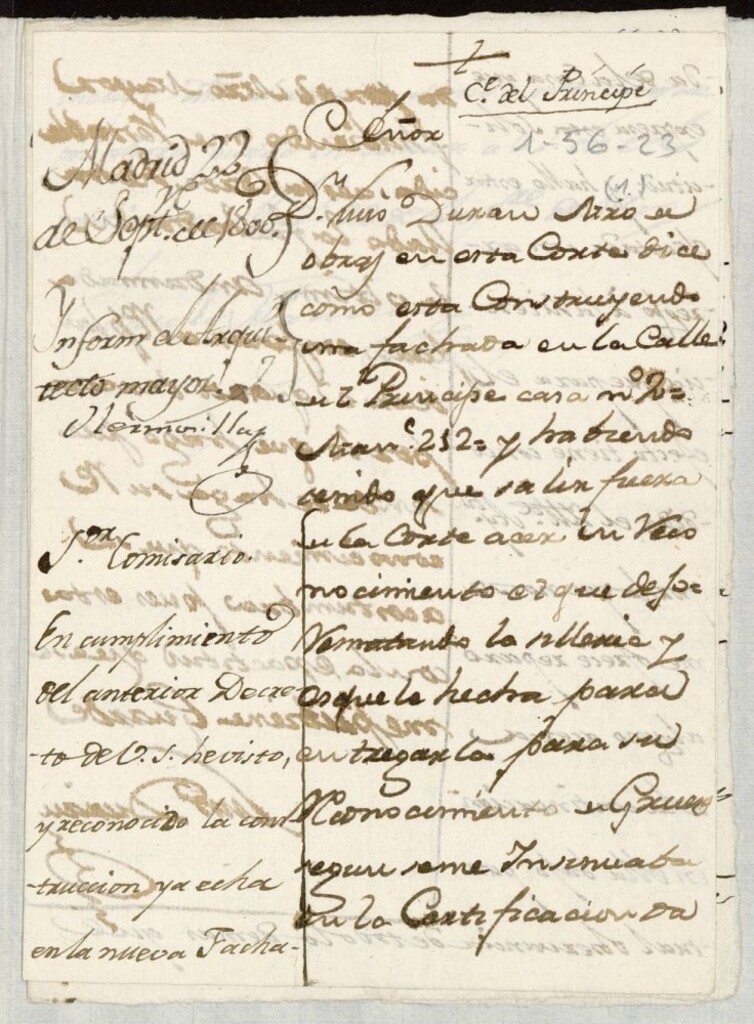 C.e del Principe
1-56-23
Señor
D.n Luis Duran Mro de
obras en esta Corte dice
como esta Construyendo
una fachada en la Calle
del Principe casa nº 2=
Man.e 212= y habiendo
tenido que salir fuera
de la Corte acer un Reco
nocimiento el que dejo=
Rematando la silleria y
esquela hecha para
entregarla para su
Reconocimiento de Grueso=
segun seme Insinuaba
en la Certificacion da
Madrid 22
de Sept.re de 1800.
Ynforme el Arqui
tecto mayor.
Hermosilla
S.or Comisario.
En cumplimiento
del anterior Decre-
-to de V. S. he visto,
y reconocido la cons
-truccion ya echa
en la nueva Facha-